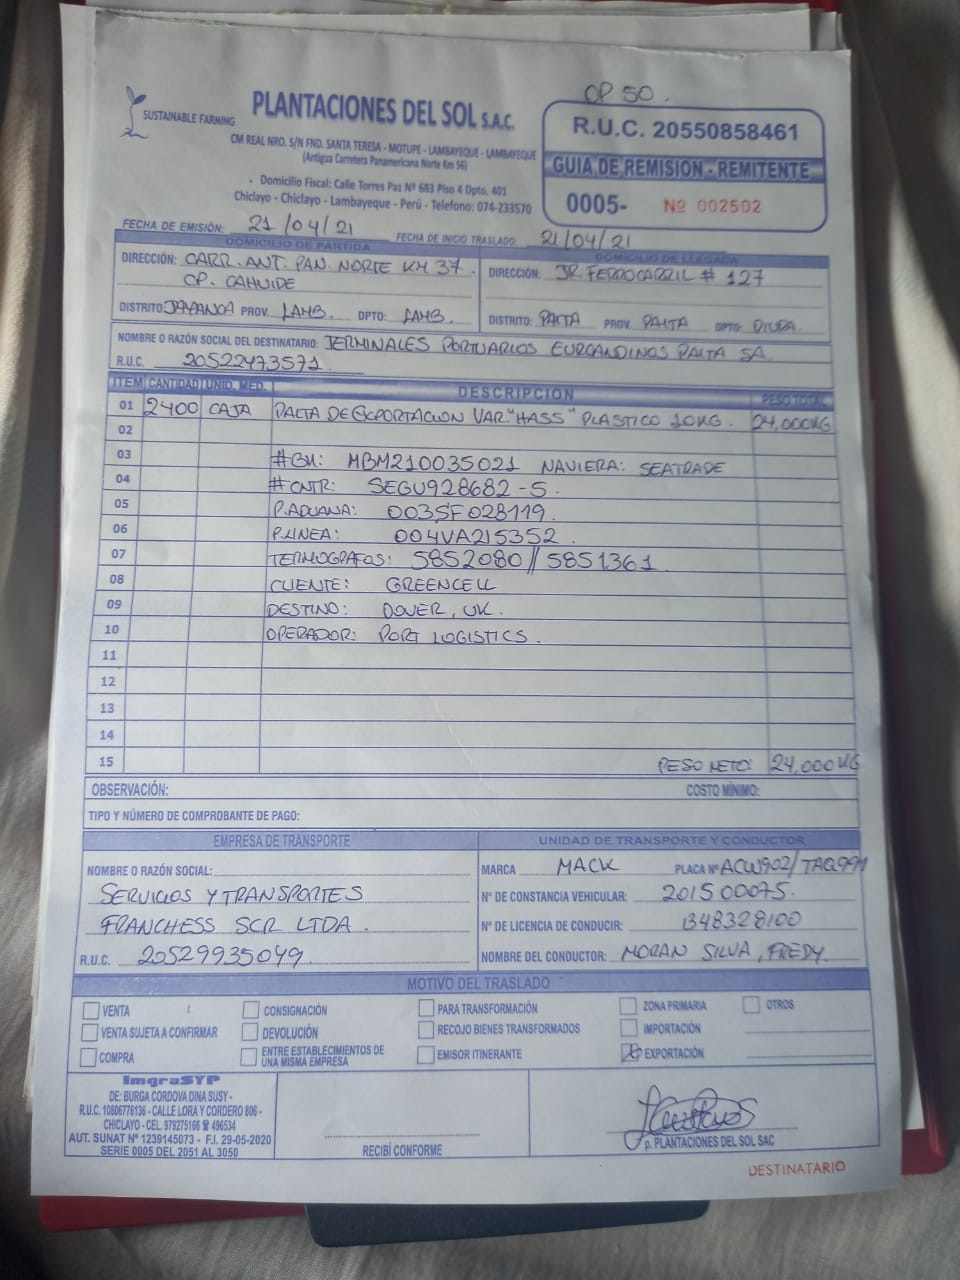 OP 50.
SUSTAINABLE FARMING
PLANTACIONES DEL SOL S.A.C.
CM REAL NRO. S/N FND. SANTA TERESA - MOTUPE - LAMBAYEQUE - LAMBAYEQUE
(Antigua Carretera Panamericana Norte Km 56)
Domicilio Fiscal: Calle Torres Paz Nº 683 Piso 4 Dpto. 401
Chiclayo - Chiclayo - Lambayeque - Perú - Telefono: 074-233570
R.U.C. 20550858461
GUIA DE REMISION - REMITENTE
0005- Nº 002502
FECHA DE EMISIÓN: 21/04/21 FECHA DE INICIO TRASLADO: 21/04/21
DOMICILIO DE PARTIDA
DIRECCIÓN: CARR. ANT. PAN. NORTE KM 37.
CP. CAHUIDE
DISTRITO: JAYANCA PROV. LAMB. DPTO: LAMB.
DOMICILIO DE LLEGADA
DIRECCIÓN: JR. FERROCARRIL # 127
DISTRITO: PAITA PROV. PAITA DPTO: PIURA
NOMBRE O RAZÓN SOCIAL DEL DESTINATARIO: TERMINALES PORTUARIOS EUROANDINOS PAITA SA
R.U.C. 20522473571
ITEM CANTIDAD UNID. MED. DESCRIPCION PESO TOTAL
01 2400 CAJA PALTA DE EXPORTACION VAR. "HASS" PLASTICO 10KG. 24,000KG
02
03 #BK: MBM210035021 NAVIERA: SEATRADE
04 #CNTR: SEGU928682-5.
05 P.ADUANA: 0035F028119.
06 P.LINEA: 004VA215352.
07 TERMOGRAFOS: 5852080//5851361.
08 CLIENTE: GREENCELL
09 DESTINO: DOVER, UK.
10 OPERADOR: PORT LOGISTICS.
11
12
13
14
15 PESO NETO: 24,000KG
OBSERVACIÓN: COSTO MÍNIMO:
TIPO Y NÚMERO DE COMPROBANTE DE PAGO:
EMPRESA DE TRANSPORTE
NOMBRE O RAZÓN SOCIAL:
SERVICIOS Y TRANSPORTES
FRANCHESS SCR LTDA.
R.U.C. 20529935049.
UNIDAD DE TRANSPORTE Y CONDUCTOR
MARCA MACK PLACA Nº ACW902/TAQ991
Nº DE CONSTANCIA VEHICULAR: 201500075.
Nº DE LICENCIA DE CONDUCIR: B48328100
NOMBRE DEL CONDUCTOR: MORAN SILVA, FREDY.
MOTIVO DEL TRASLADO
VENTA CONSIGNACIÓN PARA TRANSFORMACIÓN ZONA PRIMARIA OTROS
VENTA SUJETA A CONFIRMAR DEVOLUCIÓN RECOJO BIENES TRANSFORMADOS IMPORTACIÓN
COMPRA ENTRE ESTABLECIMIENTOS DE UNA MISMA EMPRESA EMISOR ITINERANTE X EXPORTACIÓN
ImgraSYP
DE: BURGA CORDOVA DINA SUSY -
R.U.C. 10806776136 - CALLE LORA Y CORDERO 806 -
CHICLAYO - CEL. 979275166 ☎ 496534
AUT. SUNAT Nº 1239145073 - F.I. 29-05-2020
SERIE 0005 DEL 2051 AL 3050
RECIBÍ CONFORME
p. PLANTACIONES DEL SOL SAC
DESTINATARIO